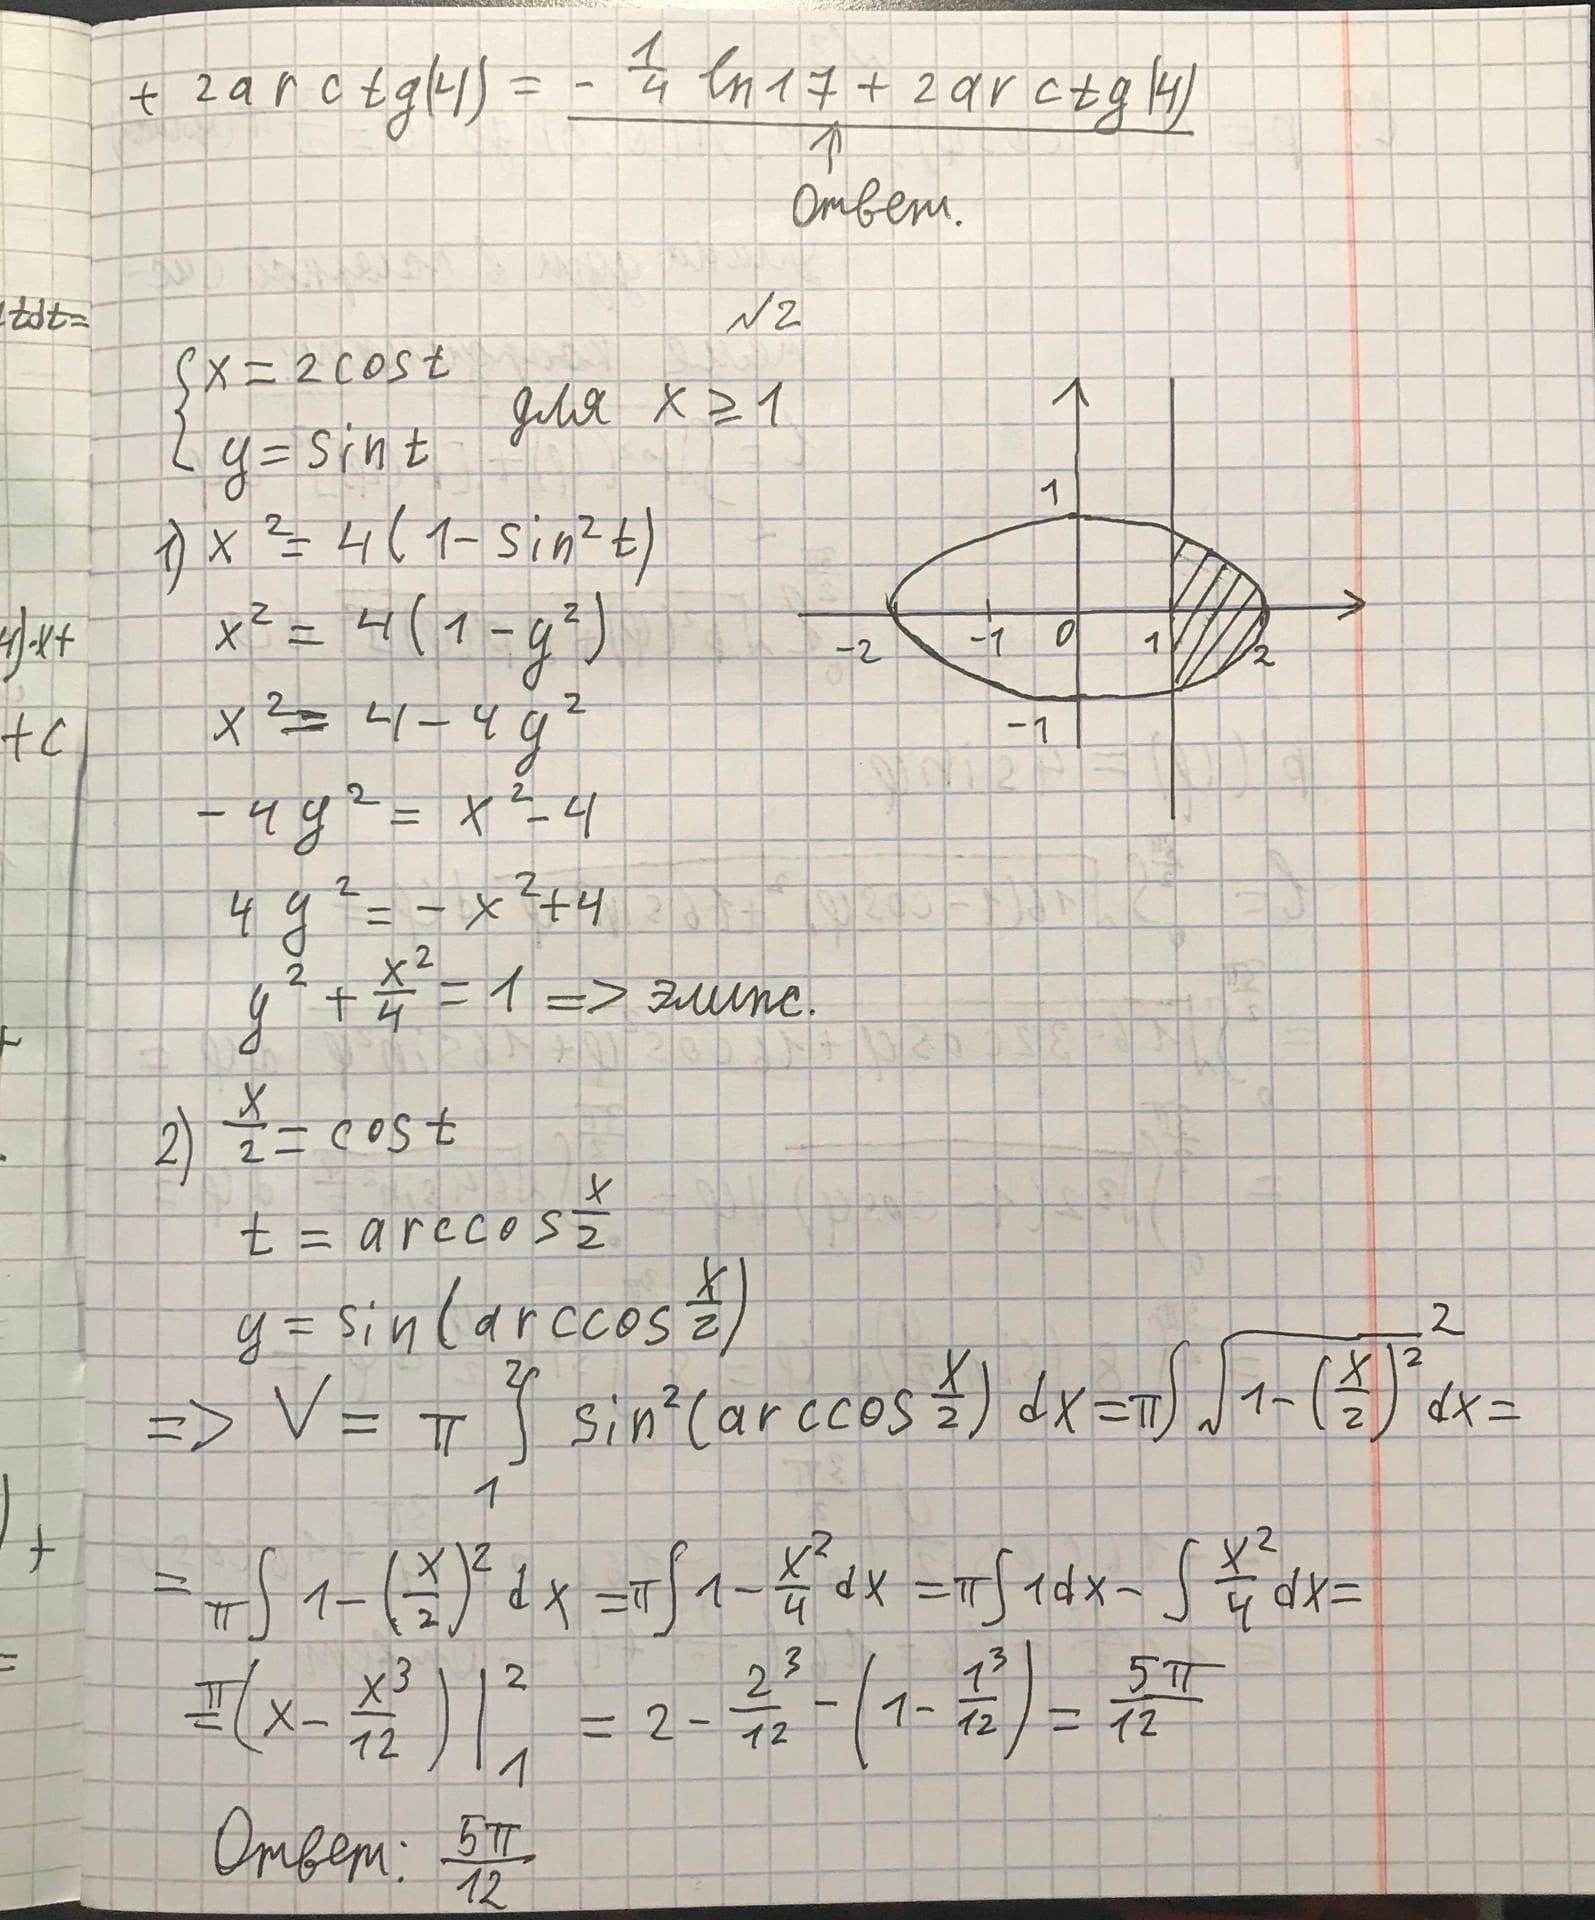 + 2arctg(4) = - 1/4 ln17 + 2arctg(4)
↑
Ответ.
√2
{ x = 2cost
y = sint
для x ≥ 1
1) x² = 4(1 - sin²t)
x² = 4(1 - y²)
x² = 4 - 4y²
- 4y² = x² - 4
4y² = - x² + 4
y² + x²/4 = 1 => элипс.
1
-2
-1
0
1
2
-1
2) x/2 = cost
t = arccos x/2
y = sin(arccos x/2)
=> V = π ∫₁² sin²(arccos x/2) dx = π∫ √(1 - (x/2)²)² dx =
= π∫ 1 - (x/2)² dx = π∫ 1 - x²/4 dx = π∫ 1dx - ∫ x²/4 dx =
= π(x - x³/12) |₁² = 2 - 2³/12 - (1 - 1³/12) = 5π/12
Ответ: 5π/12
tdt=
·x+
+c
+
=